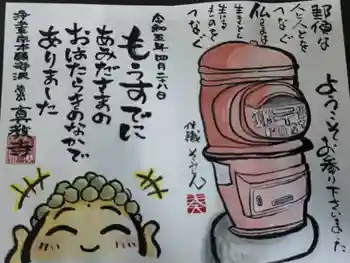 郵便は
人と人とを
つなぐ
仏さまは
生きとし
生けるものを
つなぐ
ようこそお参り下さいました
令和五年四月二八日
もうすでに
あみださまの
おはたらきのなかで
ありました
浄土真宗本願寺派
真教寺
住職